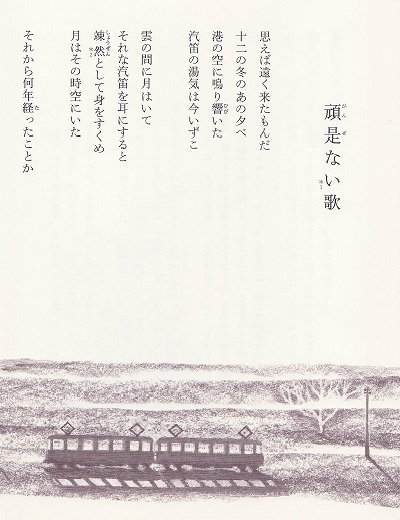 頑是ない歌
思えば遠く来たもんだ
十二の冬のあの夕べ
港の空に鳴り響いた
汽笛の湯気は今いずこ
雲の間に月はいて
それな汽笛を耳にすると
竦然として身をすくめ
月はその時空にいた
それから何年経ったことか